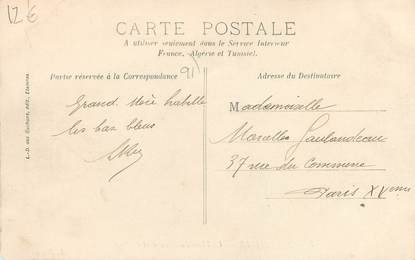 12€
CARTE POSTALE
A utiliser seulement dans le Service Intérieur
France, Algérie et Tunisie).
Partie réservée à la Correspondance
91
Adresse du Destinataire
Grand Mère habille
les bas bleus
Mademoiselle
Marcelle
37 rue du Commerce
Paris XVème
L.-D. aux Rochers, édit., Etampes